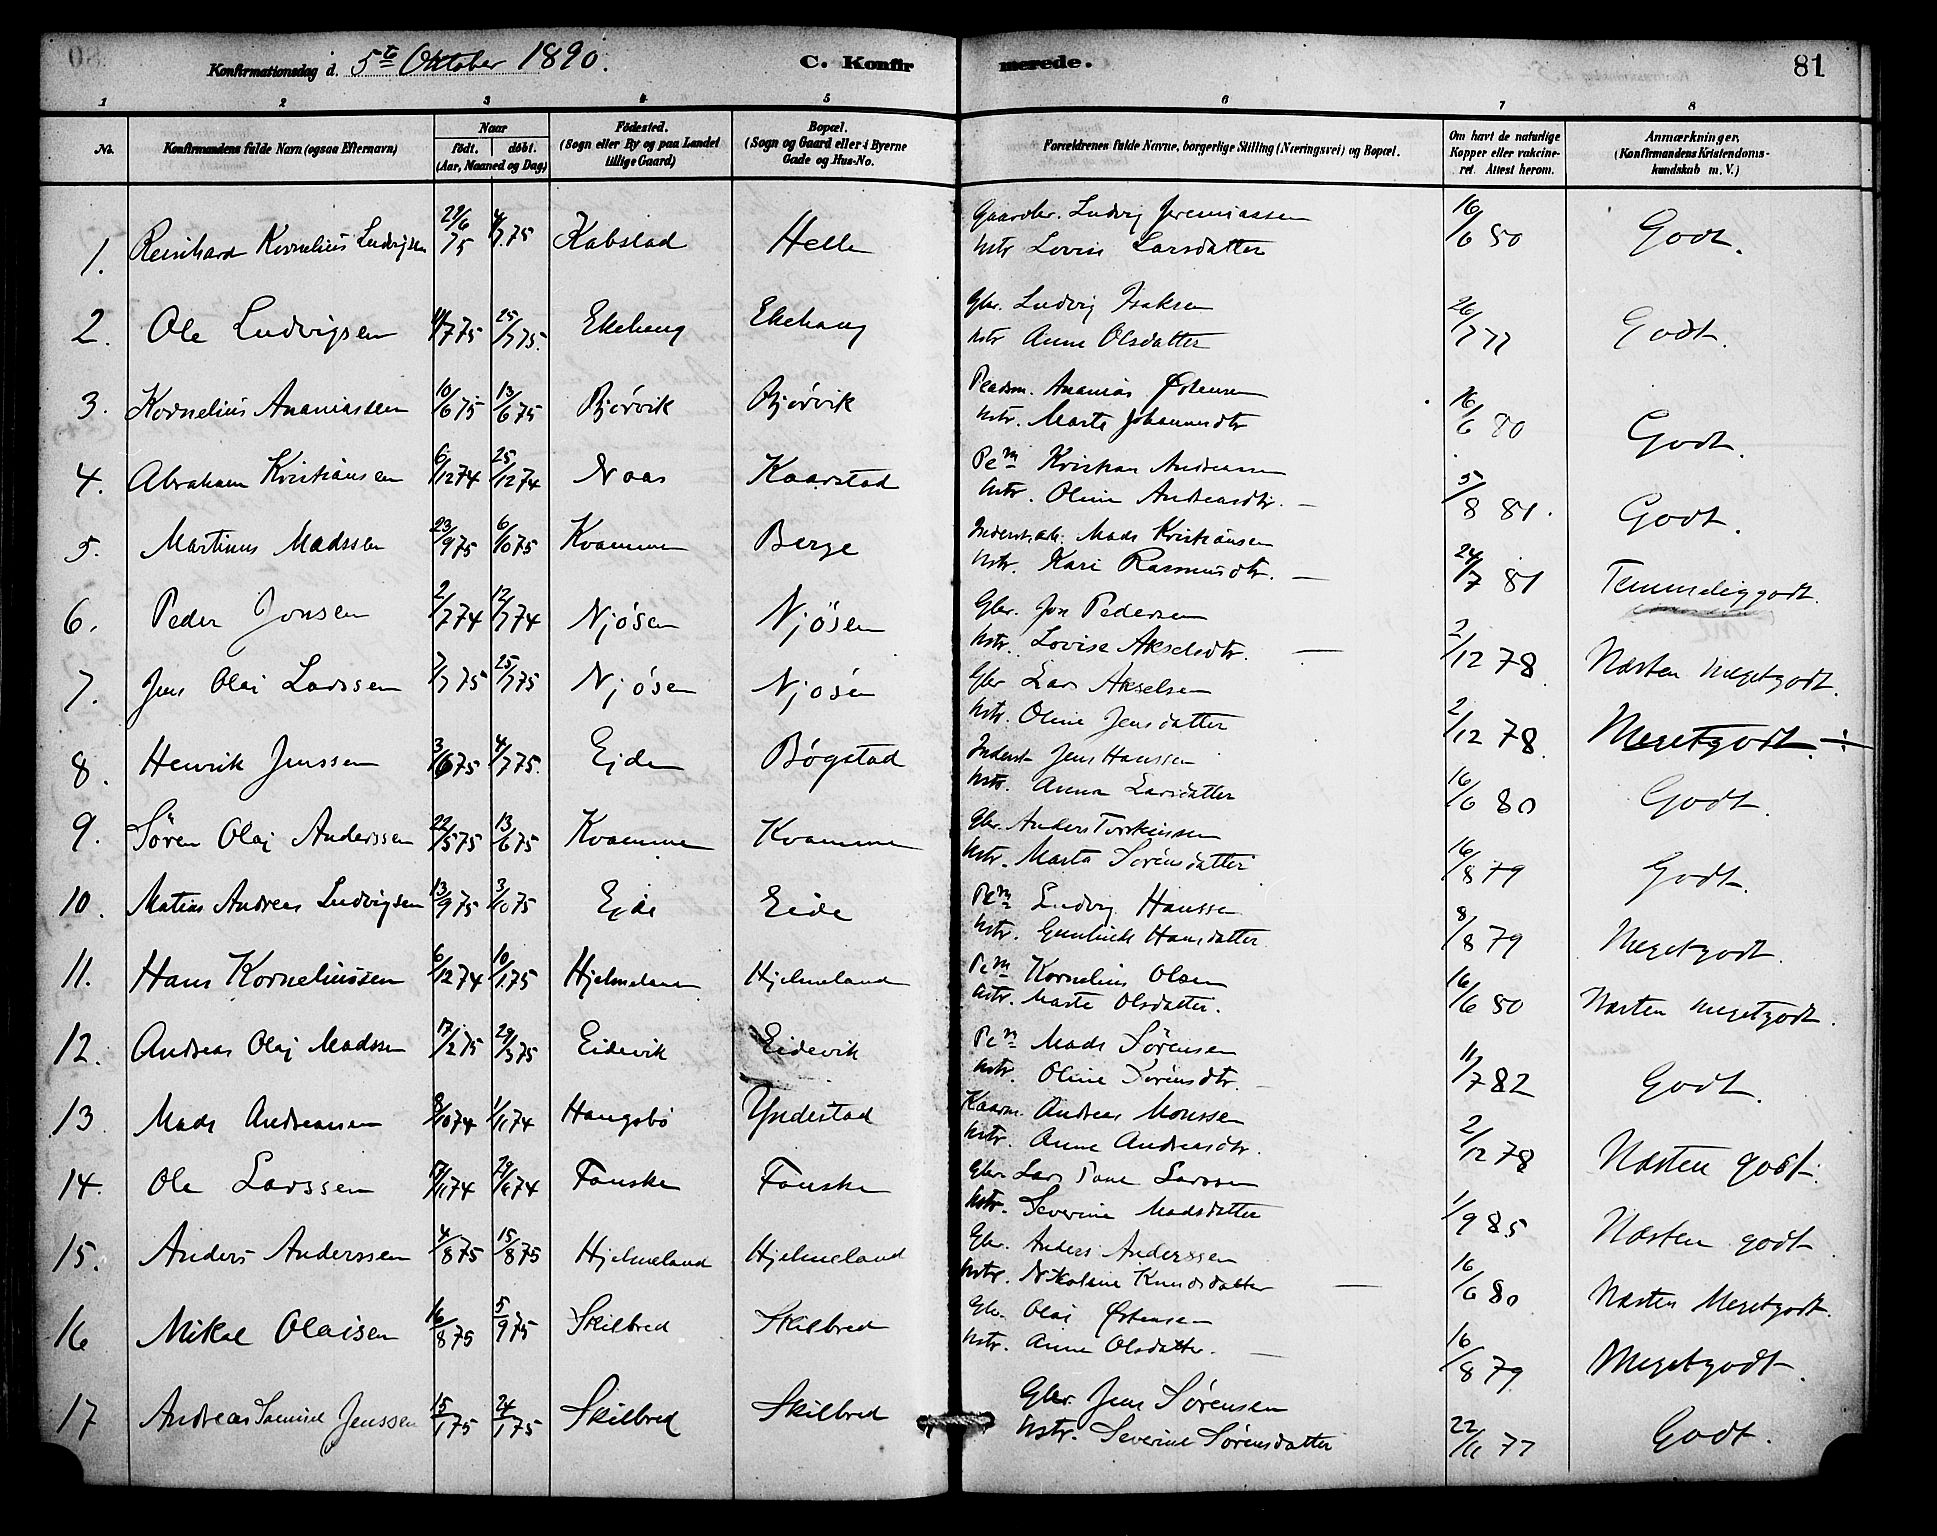 Konfirmationsdag d. 5te Oktober 1890.
C. Konfir
merede.
81
1 2 3 4 5 6 7 8
No.
Konfirmandens fulde Navn (ogsaa Efternavn)
Naar
født. døbt.
(Aar, Maaned og Dag)
Fødested.
(Sogn eller By og paa Landet
tillige Gaard)
Bopæl.
(Sogn og Gaard eller i Byerne
Gade og Hus-No.
Forældrenes fulde Navne, borgerlige Stilling (Næringsvei) og Bopæl.
Om havt de naturlige
Kopper eller vakcine-
ret. Attest herom.
Anmærkninger,
(Konfirmandens Kristendoms-
kundskab m. V.)
Gaardbr. Ludvig Jeremiassen
1. Reinhard Kornelius Ludvigsen 29/6 75 4/7 75 Kabstad Helle Hstr Lovise Larsdatter 16/6 80 Godt.
Gbr. Ludvig Isaksen
2. Ole Ludvigsen 11/7 75 25/7 75. Ekehaug Ekehaug Hstr Anne Olsdatter 26/7 77 Godt.
Pladsm. Ananias Østensen
3. Kornelius Ananiassen 10/6 75 13/6 75 Bjørvik Bjørvik Hstr. Marte Johannesdtr 16/6 80 Godt.
Pem Kristian Andreassen
4. Abraham Kristiansen 6/12 74 25/12 74 Naas Kaarstad Hstr. Oline Andreasdtr. — 5/8 81. Godt.
Inderst Mads Kristiansen
5. Martinus Madssen 23/9 75 6/10 75 Kvamme Berge Hstr. Kari Rasmusdtr. — 24/7 81 Temmeliggodt.
Gbr. Jon Pedersen
6. Peder Jonsen 2/7 74 12/7 74 Njøsen Njøsen Hstr. Lovise Akselsdtr. — 2/12 78. Næsten megetgodt.
Gbr Lars Akselsen
7. Jens Olai Larssen 7/7 75 25/7 75 Njøsen Njøsen Hstr. Oline Jensdatter 2/12 78. Megetgodt ÷
Inderst Jens Hanssen
8. Henrik Jenssen 3/6 75 4/7 75. Ejde Bøgstad Hstr. Anna Larsdatter 16/6 80 Godt.
Gbr. Anders Torkinssen
9. Søren Olaj Anderssen 22/5 75 13/6 75 Kvamme Kvamme Hstr. Marta Sørensdatter 16/8 79 Godt.
Pem Ludvig Hanssen
10. Matias Andreas Ludvigsen 13/9 75 3/10 75 Ejde Eide Hstr. Gunhild Hansdatter 8/8 79 Megetgodt.
Pem Kornelius Olsen
11. Hans Korneliussen 6/12 74 10/1 75 Hjelmeland Hjelmeland Hstr. Marte Olsdatter. 16/6 80 Næsten megetgodt.
Pem Mads Sørensen
12. Andreas Olaj Madssen 17/2 75 29/3 75 Eidevik Eidevik Hstr. Oline Sørensdtr. — 11/7 82 Godt.
Kaarm. Andreas Monssen
13 Mads Andreassen 8/10 74 1/11 74 Haugsbø Yndestad Hstr. Anne Andreasdtr. 2/12 78 Næsten godt.
Gbr. Lars Larssen
14. Ole Larssen 17/11 74 29/11 74 Fauske Fauske Hstr. Severine Madsdatter 1/9 85 Næsten godt
Gbr. Anders Anderssen
15. Anders Anderssen 4/8 75 15/8 75 Hjelmeland Hjelmeland Hstr. Nikoline Knudsdatter — 16/6 80 Næsten Megetgodt.
Gbr. Olai Østensen
16 Mikal Olaisen 16/8 75 5/9 75 Skilbred Skilbred Hstr. Anne Olsdatter. — 16/8 79. Megetgodt.
Gbr. Jens Sørensen
17 Andreas Samuel Jenssen 15/1 75 24/1 75 Skilbred Skilbred Hstr. Severine Sørensdatter 22/11 77 Godt.